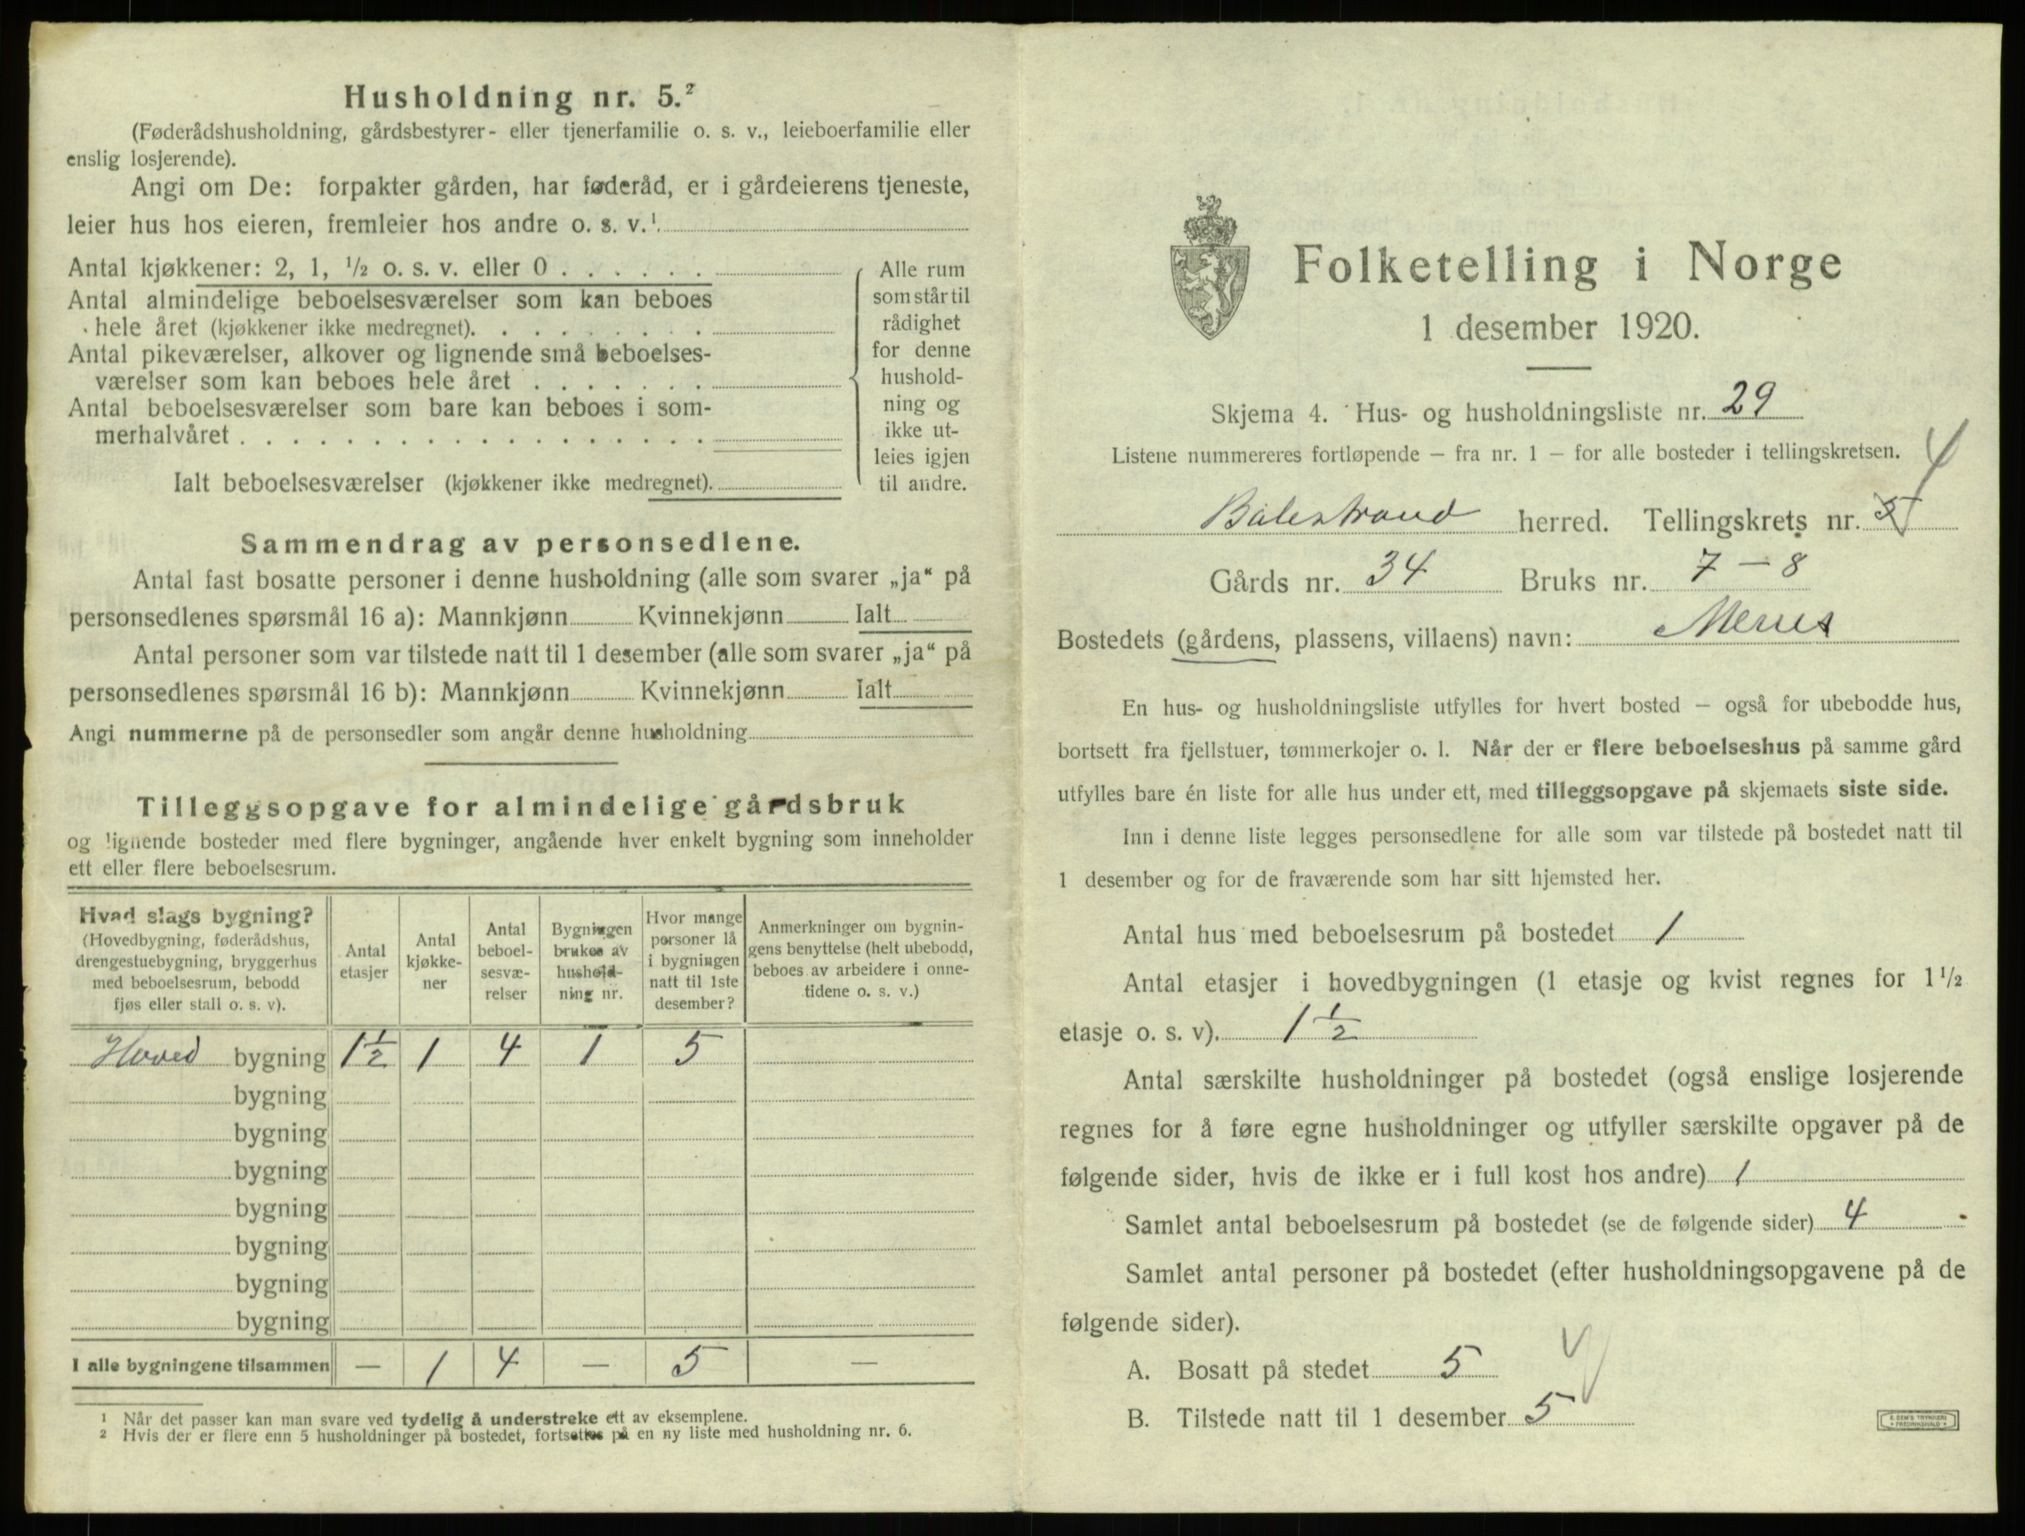 Husholdning nr. 5.²
(Føderådshusholdning, gårdsbestyrer- eller tjenerfamilie o. s. v., leieboerfamilie eller
enslig losjerende).
Angi om De: forpakter gården, har føderåd, er i gårdeierens tjeneste,
leier hus hos eieren, fremleier hos andre o. s. v.¹
Antal kjøkkener: 2, 1, ½ o. s. v. eller 0 . . . . . .
Antal almindelige beboelsesværelser som kan beboes
hele året (kjøkkener ikke medregnet). . . . . . . . .
Antal pikeværelser, alkover og lignende små beboelses-
værelser som kan beboes hele året . . . . . . .
Antal beboelsesværelser som bare kan beboes i som-
merhalvåret . . . . . . . . . . . . . . . . . .
Ialt beboelsesværelser (kjøkkener ikke medregnet).
Alle rum
som står til
rådighet
for denne
hushold-
ning og
ikke ut-
leies igjen
til andre.
Sammendrag av personsedlene.
Antal fast bosatte personer i denne husholdning (alle som svarer „ja“ på
personsedlenes spørsmål 16 a): Mannkjønn Kvinnekjønn Ialt
Antal personer som var tilstede natt til 1 desember (alle som svarer „ja“ på
personsedlenes spørsmål 16 b): Mannkjønn Kvinnekjønn Ialt
Angi nummerne på de personsedler som angår denne husholdning
Tilleggsopgave for almindelige gårdsbruk
og lignende bosteder med flere bygninger, angående hver enkelt bygning som inneholder
ett eller flere beboelsesrum.
Hvad slags bygning?
(Hovedbygning, føderådshus,
drengestuebygning, bryggerhus
med beboelsesrum, bebodd
fjøs eller stall o. s. v).
Antal
etasjer
Antal
kjøkke-
ner
Antal
beboel-
sesvæ-
relser
Bygningen
brukes av
hushold-
ning nr.
Hvor mange
personer lå
i bygningen
natt til 1ste
desember?
Anmerkninger om bygnin-
gens benyttelse (helt ubebodd,
beboes av arbeidere i onne-
tidene o. s. v.)
Hoved bygning 1½ 1 4 1 5
bygning
bygning
bygning
bygning
bygning
bygning
bygning
I alle bygningene tilsammen — 1 4 — 5 —
¹ Når det passer kan man svare ved tydelig å understreke ett av eksemplene.
² Hvis der er flere enn 5 husholdninger på bostedet, fortsettes på en ny liste med husholdning nr. 6.
Folketelling i Norge
1 desember 1920.
Skjema 4. Hus- og husholdningsliste nr. 29
Listene nummereres fortløpende — fra nr. 1 — for alle bosteder i tellingskretsen.
4
Balestrand herred. Tellingskrets nr. 5
Gårds nr. 34 Bruks nr. 7 — 8
Bostedets (gårdens, plassens, villaens) navn: Menes
En hus- og husholdningsliste utfylles for hvert bosted — også for ubebodde hus,
bortsett fra fjellstuer, tømmerkojer o. l. Når der er flere beboelseshus på samme gård
utfylles bare én liste for alle hus under ett, med tilleggsopgave på skjemaets siste side.
Inn i denne liste legges personsedlene for alle som var tilstede på bostedet natt til
1 desember og for de fraværende som har sitt hjemsted her.
Antal hus med beboelsesrum på bostedet 1
Antal etasjer i hovedbygningen (1 etasje og kvist regnes for 1½
etasje o. s. v). 1½
Antal særskilte husholdninger på bostedet (også enslige losjerende
regnes for å føre egne husholdninger og utfyller særskilte opgaver på de
følgende sider, hvis de ikke er i full kost hos andre) 1
Samlet antal beboelsesrum på bostedet (se de følgende sider) 4
Samlet antal personer på bostedet (efter husholdningsopgavene på de
følgende sider).
A. Bosatt på stedet 5
B. Tilstede natt til 1 desember 5